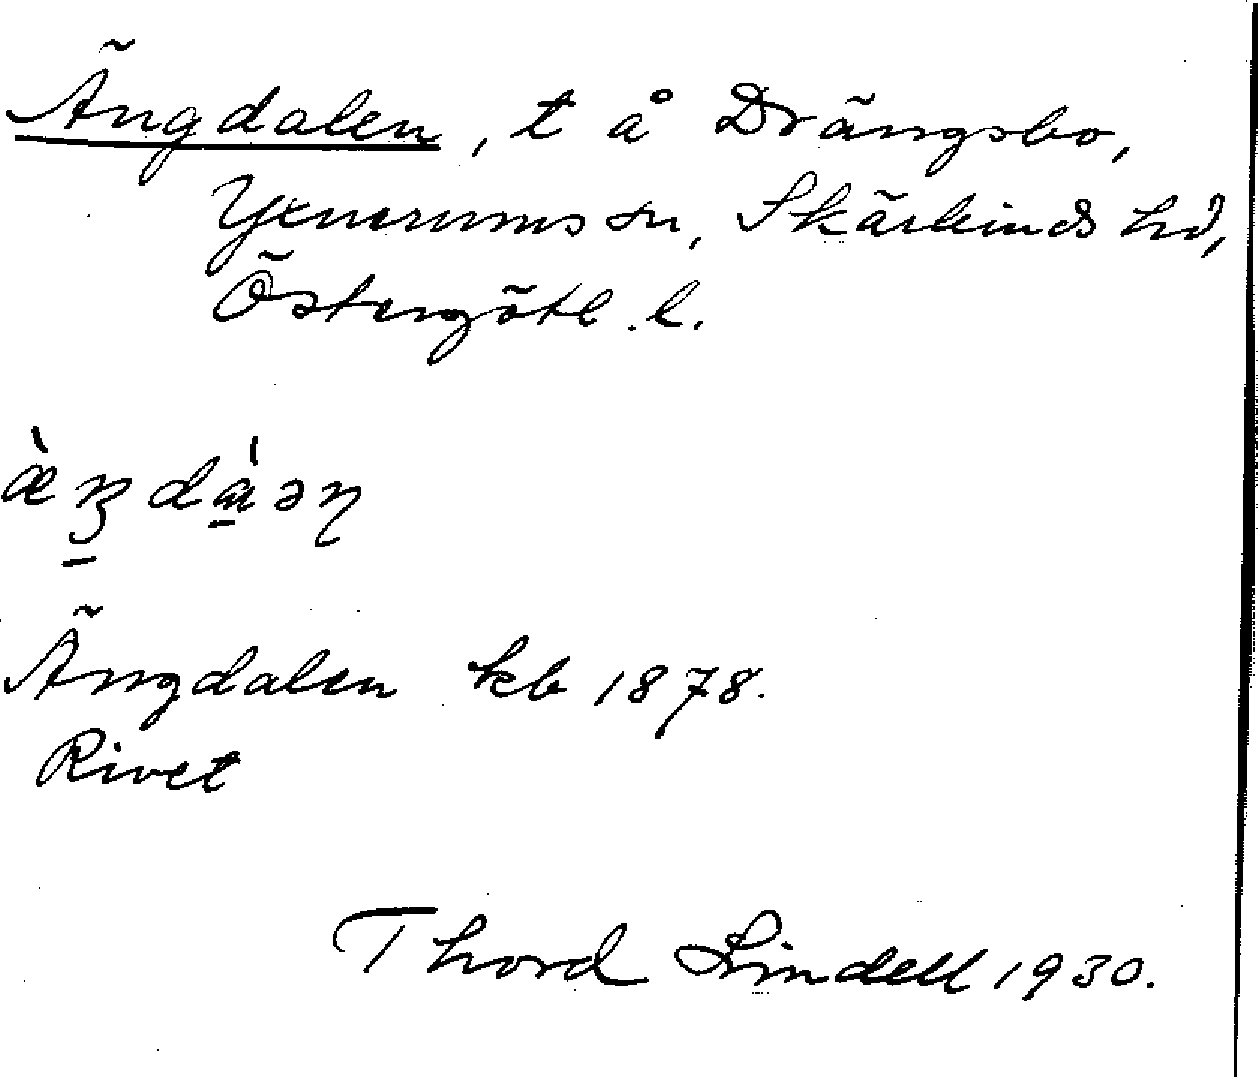 Ängdalen, t å Drängsbo,
Yxnerums sn, Skärkinds hd,
Östergötl. l.
Ängdalen kb 1878.
Rivet
Thord Lindell 1930.